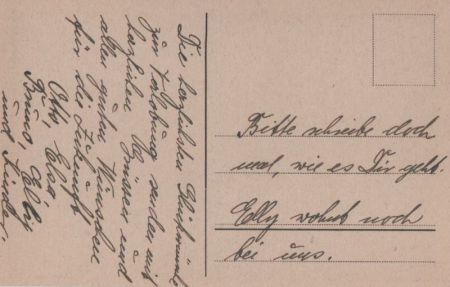 Die herzlichsten Glückwünsche
zur Verlobung senden mit
herzlichen Grüssen und
allen guten Wünschen
für die Zukunft
Otto, Elsa,
Bruno, Elly
und Kinder.
Bitte schreibe doch
mal, wie es Dir geht.
Elly wohnt noch
bei uns.